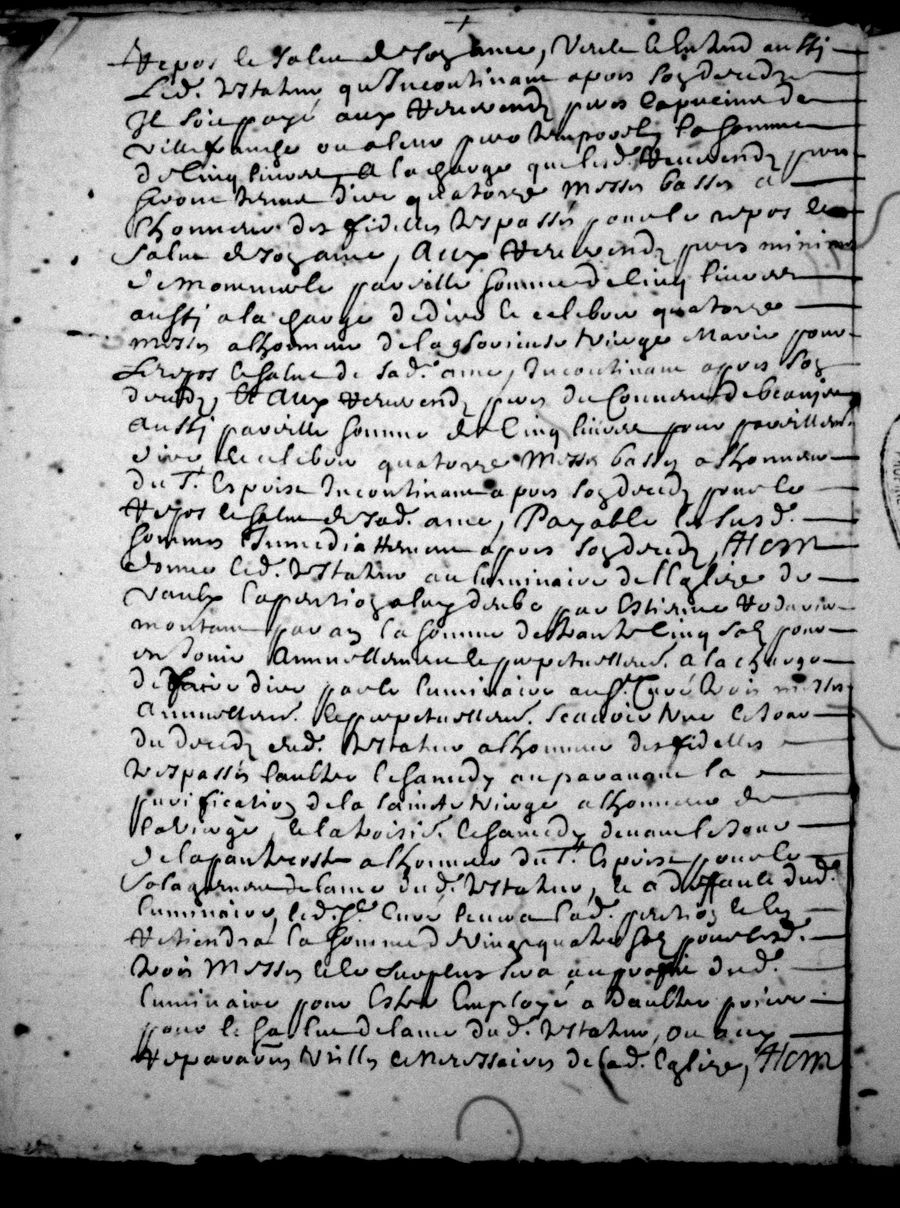 Repos le salue de son ame, Veult le Entend aussi
led. testateur qu'Incontinant apres son deceds
Il soit payé aux Reverends peres Capucins de
villefranche ou a leur pere temporel la somme
de Cinq livres, a la charge que lesd. Reverends peres
seront tenus dire quatorze Messes basses a
l'honneur des fidelles trespassés pour le repos le
salue de son ame, Aux Reverends peres minimes
de Montmerle pareille somme de Cinq livres
aussi a la charge de dire le celebrer quatorze
messes a lhonneur de la glorieuse Vierge Marie pour
Le repos le salue de sad. ame, Incontinant apres son
deceds, Et Aux Reverends peres du Couvent de beaujeu
Aussi pareille somme de Cinq livres pour pareillement
dire le celebrer quatorze Messes basses a lhonneur
du St. Esprit Incontinant apres son deceds pour le
Repos le salue de sad. ame, Payable lesusd.
sommes Immediattement apres son deceds, Item
donne led. testateur au luminaire de l'Eglise de
Vaulx la pention a luy deube par Estienne
montant par an la somme de trante Cinq solz pour
en Jouir Annuellement le perpetuellem. a la charge
de faire dire par le luminaire au Sr. Curé trois messes
Annuellem. le perpetuellem. scavoir Une le Jour
du deceds dud. testateur a lhonneur des fidelles
trespassés l'aultre le samedy auparavant la
purification de la saincte Vierge a lhonneur de
la Vierge, le la troisie. le samedy devant le Jour
de la pantecoste a lhonneur du St. Esprit pour le
solagement de lame dud. testateur, le a deffault dud.
luminaire, led. Sr. Curé levera lad. pention le en
Retiendra la somme de vingt quatre solz pour lesd.
trois Messes le le surplus sera au profit dud.
luminaire pour Estre Employé a d'aultre prieres
pour le salue de lame dud. testateur, ou aux
Reparaons Utilles le necessaires de lad. Eglise, Item